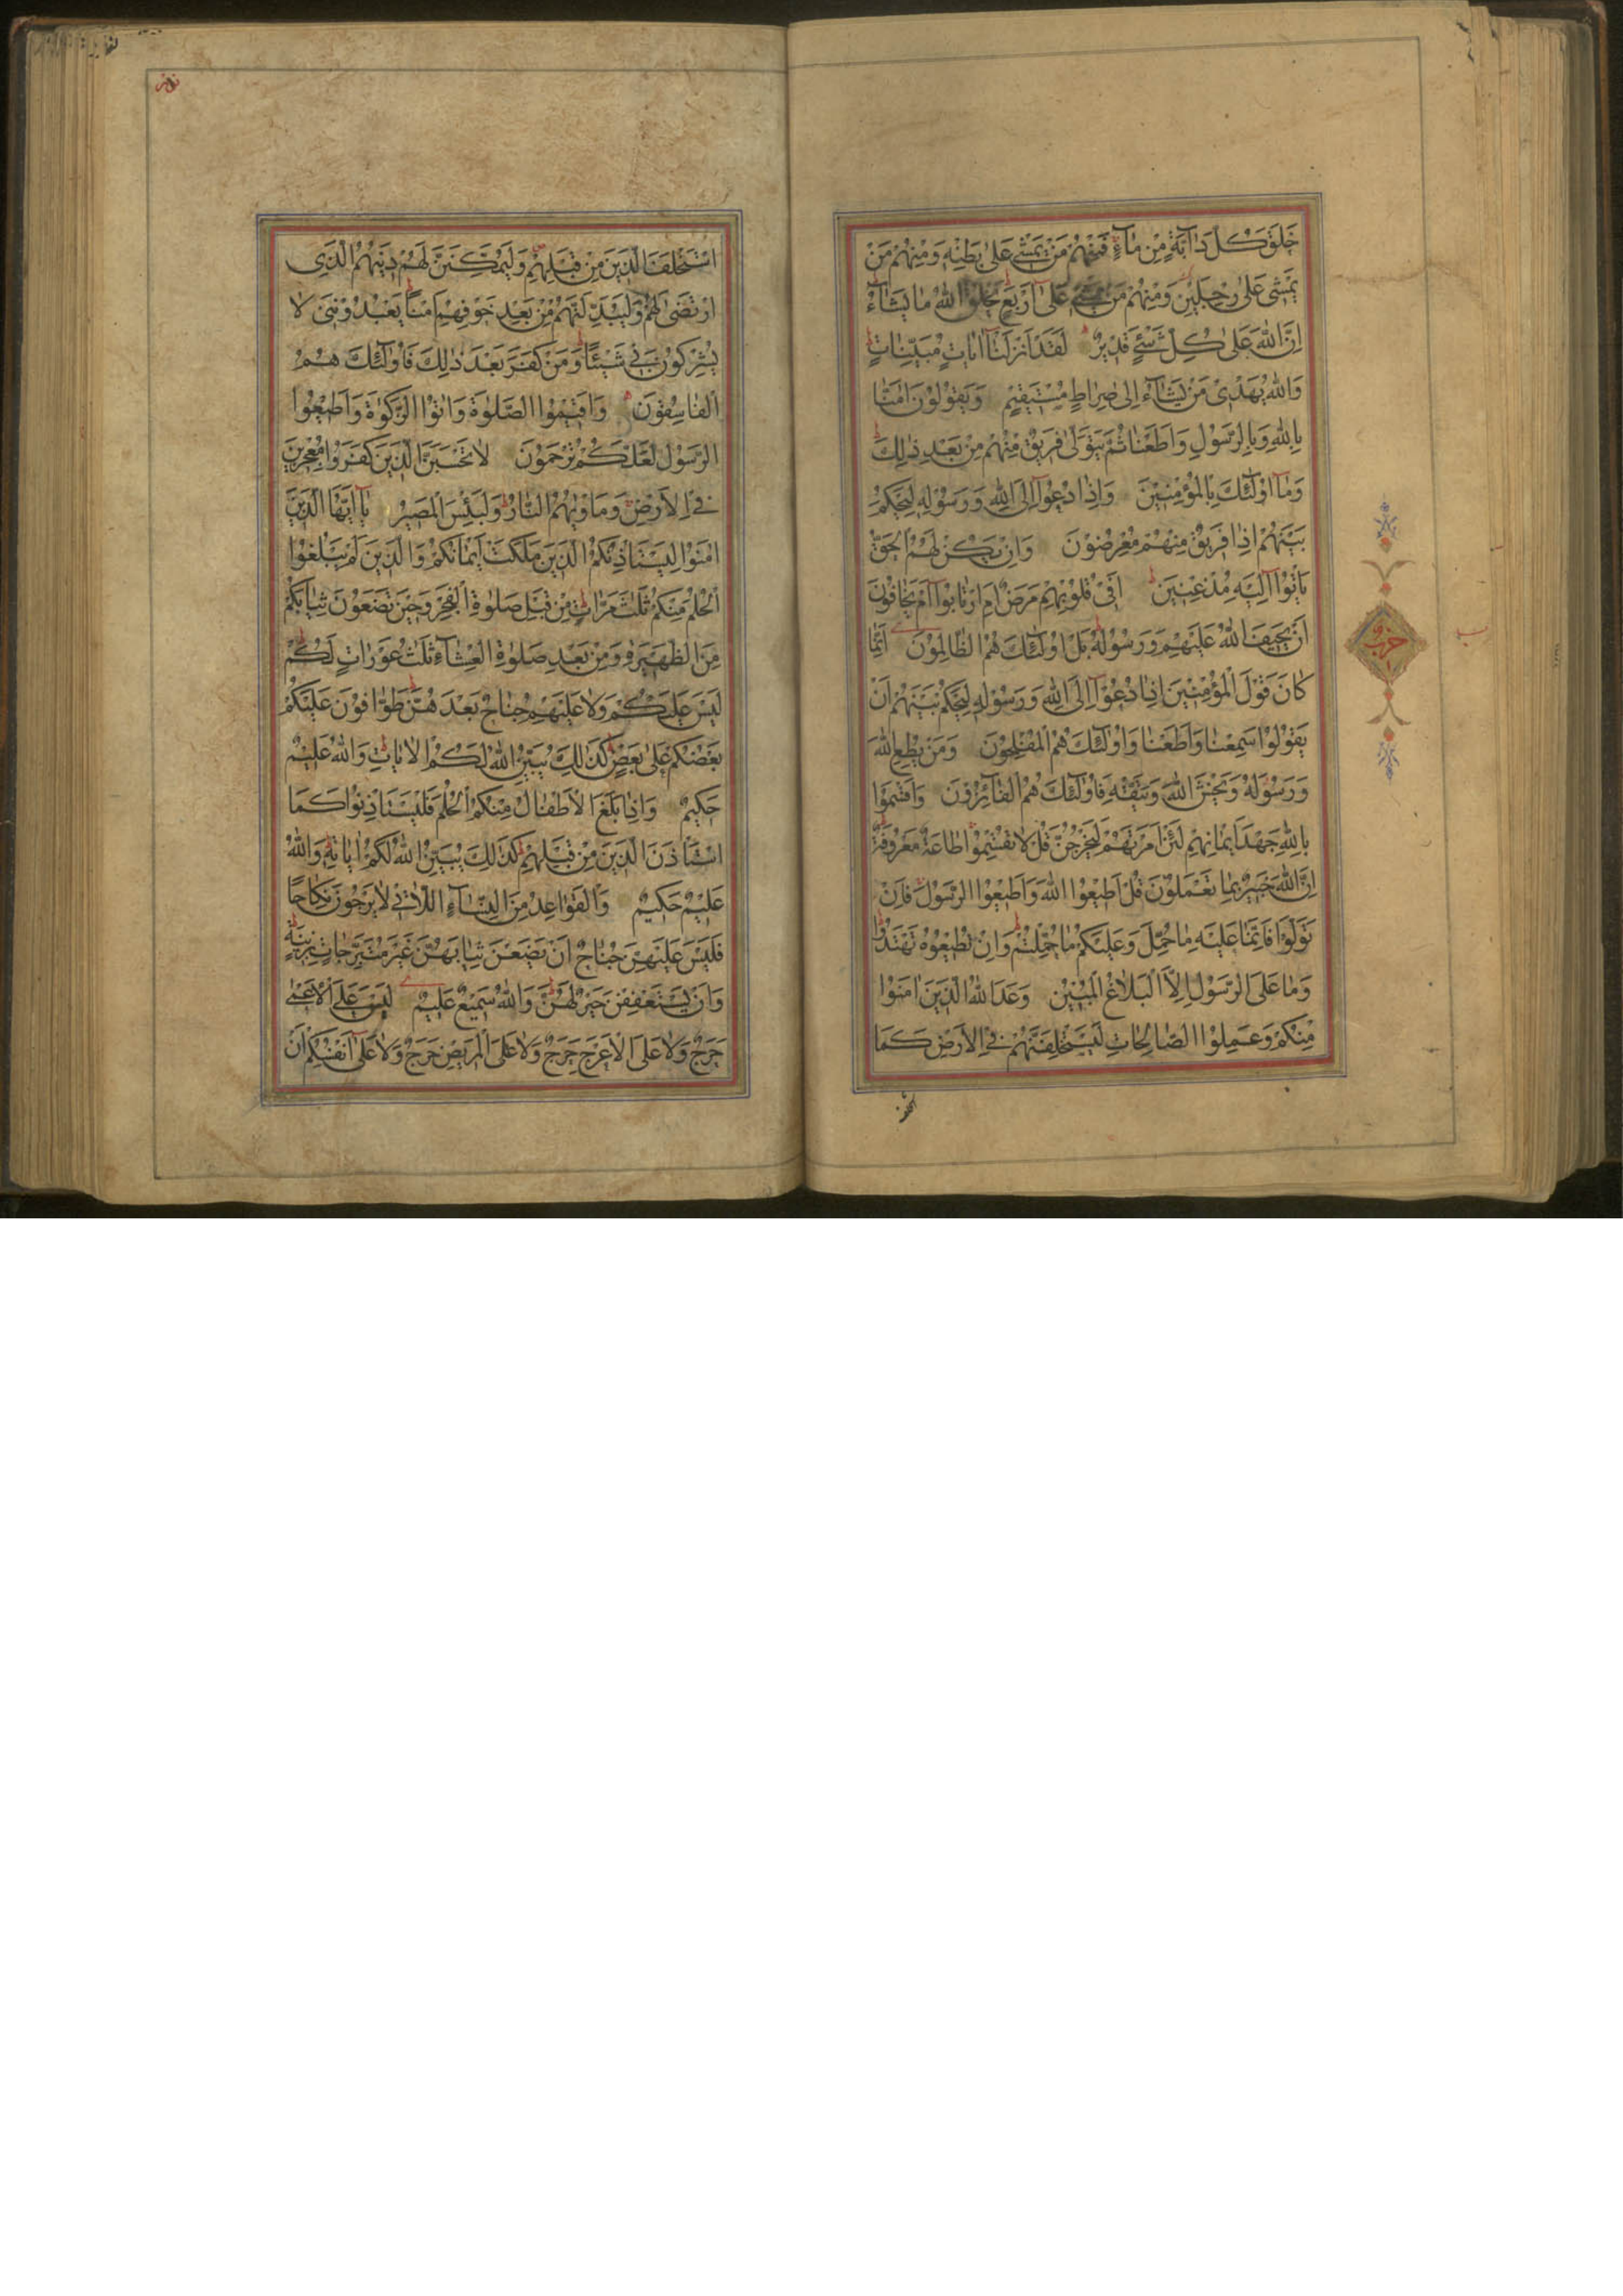 خَلَقَ كُلَّ دَآبَّةٍ مِنْ مَآءٍ فَمِنْهُمْ مَنْ يَمْشِي عَلىٰ بَطْنِهِ وَمِنْهُمْ مَنْ
يَمْشِي عَلىٰ رِجْلَيْنِ وَمِنْهُمْ مَنْ يَمْشِي عَلىٰ اَرْبَعٍ يَخْلُقُ اللّٰهُ مَا يَشَآءُ
اِنَّ اللّٰهَ عَلىٰ كُلِّ شَيْءٍ قَدِيرٌ لَقَدْ اَنْزَلْنَا اٰيَاتٍ مُبَيِّنَاتٍ
وَاللّٰهُ يَهْدِي مَنْ يَشَآءُ اِلىٰ صِرَاطٍ مُسْتَقِيمٍ وَيَقُولُونَ اٰمَنَّا
بِاللّٰهِ وَبِالرَّسُولِ وَاَطَعْنَا ثُمَّ يَتَوَلّىٰ فَرِيقٌ مِنْهُمْ مِنْ بَعْدِ ذٰلِكَ
وَمَآ اُولٰٓئِكَ بِالْمُؤْمِنِينَ وَاِذَا دُعُوٓا اِلَى اللّٰهِ وَرَسُولِهِ لِيَحْكُمَ
بَيْنَهُمْ اِذَا فَرِيقٌ مِنْهُمْ مُعْرِضُونَ وَاِنْ يَكُنْ لَهُمُ الْحَقُّ
يَأْتُوٓا اِلَيْهِ مُذْعِنِينَ اَفِي قُلُوبِهِمْ مَرَضٌ اَمِ ارْتَابُوٓا اَمْ يَخَافُونَ
اَنْ يَحِيفَ اللّٰهُ عَلَيْهِمْ وَرَسُولُهُ بَلْ اُولٰٓئِكَ هُمُ الظَّالِمُونَ اِنَّمَا
كَانَ قَوْلَ الْمُؤْمِنِينَ اِذَا دُعُوٓا اِلَى اللّٰهِ وَرَسُولِهِ لِيَحْكُمَ بَيْنَهُمْ اَنْ
يَقُولُوا سَمِعْنَا وَاَطَعْنَا وَاُولٰٓئِكَ هُمُ الْمُفْلِحُونَ وَمَنْ يُطِعِ اللّٰهَ
وَرَسُولَهُ وَيَخْشَ اللّٰهَ وَيَتَّقْهِ فَاُولٰٓئِكَ هُمُ الْفَآئِزُونَ وَاَقْسَمُوا
بِاللّٰهِ جَهْدَ اَيْمَانِهِمْ لَئِنْ اَمَرْتَهُمْ لَيَخْرُجُنَّ قُلْ لَا تُقْسِمُوا طَاعَةٌ مَعْرُوفَةٌ
اِنَّ اللّٰهَ خَبِيرٌ بِمَا تَعْمَلُونَ قُلْ اَطِيعُوا اللّٰهَ وَاَطِيعُوا الرَّسُولَ فَاِنْ
تَوَلَّوْا فَاِنَّمَا عَلَيْهِ مَا حُمِّلَ وَعَلَيْكُمْ مَا حُمِّلْتُمْ وَاِنْ تُطِيعُوهُ تَهْتَدُوا
وَمَا عَلَى الرَّسُولِ اِلَّا الْبَلَاغُ الْمُبِينُ وَعَدَ اللّٰهُ الَّذِينَ اٰمَنُوا
مِنْكُمْ وَعَمِلُوا الصَّالِحَاتِ لَيَسْتَخْلِفَنَّهُمْ فِي الْاَرْضِ كَمَا
حزب
اسْتَخْلَفَ الَّذِينَ مِنْ قَبْلِهِمْ وَلَيُمَكِّنَنَّ لَهُمْ دِينَهُمُ الَّذِي
ارْتَضىٰ لَهُمْ وَلَيُبَدِّلَنَّهُمْ مِنْ بَعْدِ خَوْفِهِمْ اَمْنًا يَعْبُدُونَنِي لَا
يُشْرِكُونَ بِي شَيْئًا وَمَنْ كَفَرَ بَعْدَ ذٰلِكَ فَاُولٰٓئِكَ هُمُ
الْفَاسِقُونَ وَاَقِيمُوا الصَّلٰوةَ وَاٰتُوا الزَّكٰوةَ وَاَطِيعُوا
الرَّسُولَ لَعَلَّكُمْ تُرْحَمُونَ لَا تَحْسَبَنَّ الَّذِينَ كَفَرُوا مُعْجِزِينَ
فِي الْاَرْضِ وَمَأْوٰيهُمُ النَّارُ وَلَبِئْسَ الْمَصِيرُ يَآ اَيُّهَا الَّذِينَ
اٰمَنُوا لِيَسْتَأْذِنْكُمُ الَّذِينَ مَلَكَتْ اَيْمَانُكُمْ وَالَّذِينَ لَمْ يَبْلُغُوا
الْحُلُمَ مِنْكُمْ ثَلٰثَ مَرَّاتٍ مِنْ قَبْلِ صَلٰوةِ الْفَجْرِ وَحِينَ تَضَعُونَ ثِيَابَكُمْ
مِنَ الظَّهِيرَةِ وَمِنْ بَعْدِ صَلٰوةِ الْعِشَآءِ ثَلٰثُ عَوْرَاتٍ لَكُمْ
لَيْسَ عَلَيْكُمْ وَلَا عَلَيْهِمْ جُنَاحٌ بَعْدَهُنَّ طَوَّافُونَ عَلَيْكُمْ
بَعْضُكُمْ عَلىٰ بَعْضٍ كَذٰلِكَ يُبَيِّنُ اللّٰهُ لَكُمُ الْاٰيَاتِ وَاللّٰهُ عَلِيمٌ
حَكِيمٌ وَاِذَا بَلَغَ الْاَطْفَالُ مِنْكُمُ الْحُلُمَ فَلْيَسْتَأْذِنُوا كَمَا
اسْتَأْذَنَ الَّذِينَ مِنْ قَبْلِهِمْ كَذٰلِكَ يُبَيِّنُ اللّٰهُ لَكُمْ اٰيَاتِهِ وَاللّٰهُ
عَلِيمٌ حَكِيمٌ وَالْقَوَاعِدُ مِنَ النِّسَآءِ اللَّاتِي لَا يَرْجُونَ نِكَاحًا
فَلَيْسَ عَلَيْهِنَّ جُنَاحٌ اَنْ يَضَعْنَ ثِيَابَهُنَّ غَيْرَ مُتَبَرِّجَاتٍ بِزِينَةٍ
وَاَنْ يَسْتَعْفِفْنَ خَيْرٌ لَهُنَّ وَاللّٰهُ سَمِيعٌ عَلِيمٌ لَيْسَ عَلَى الْاَعْمىٰ
حَرَجٌ وَلَا عَلَى الْاَعْرَجِ حَرَجٌ وَلَا عَلَى الْمَرِيضِ حَرَجٌ وَلَا عَلىٰٓ اَنْفُسِكُمْ اَنْ